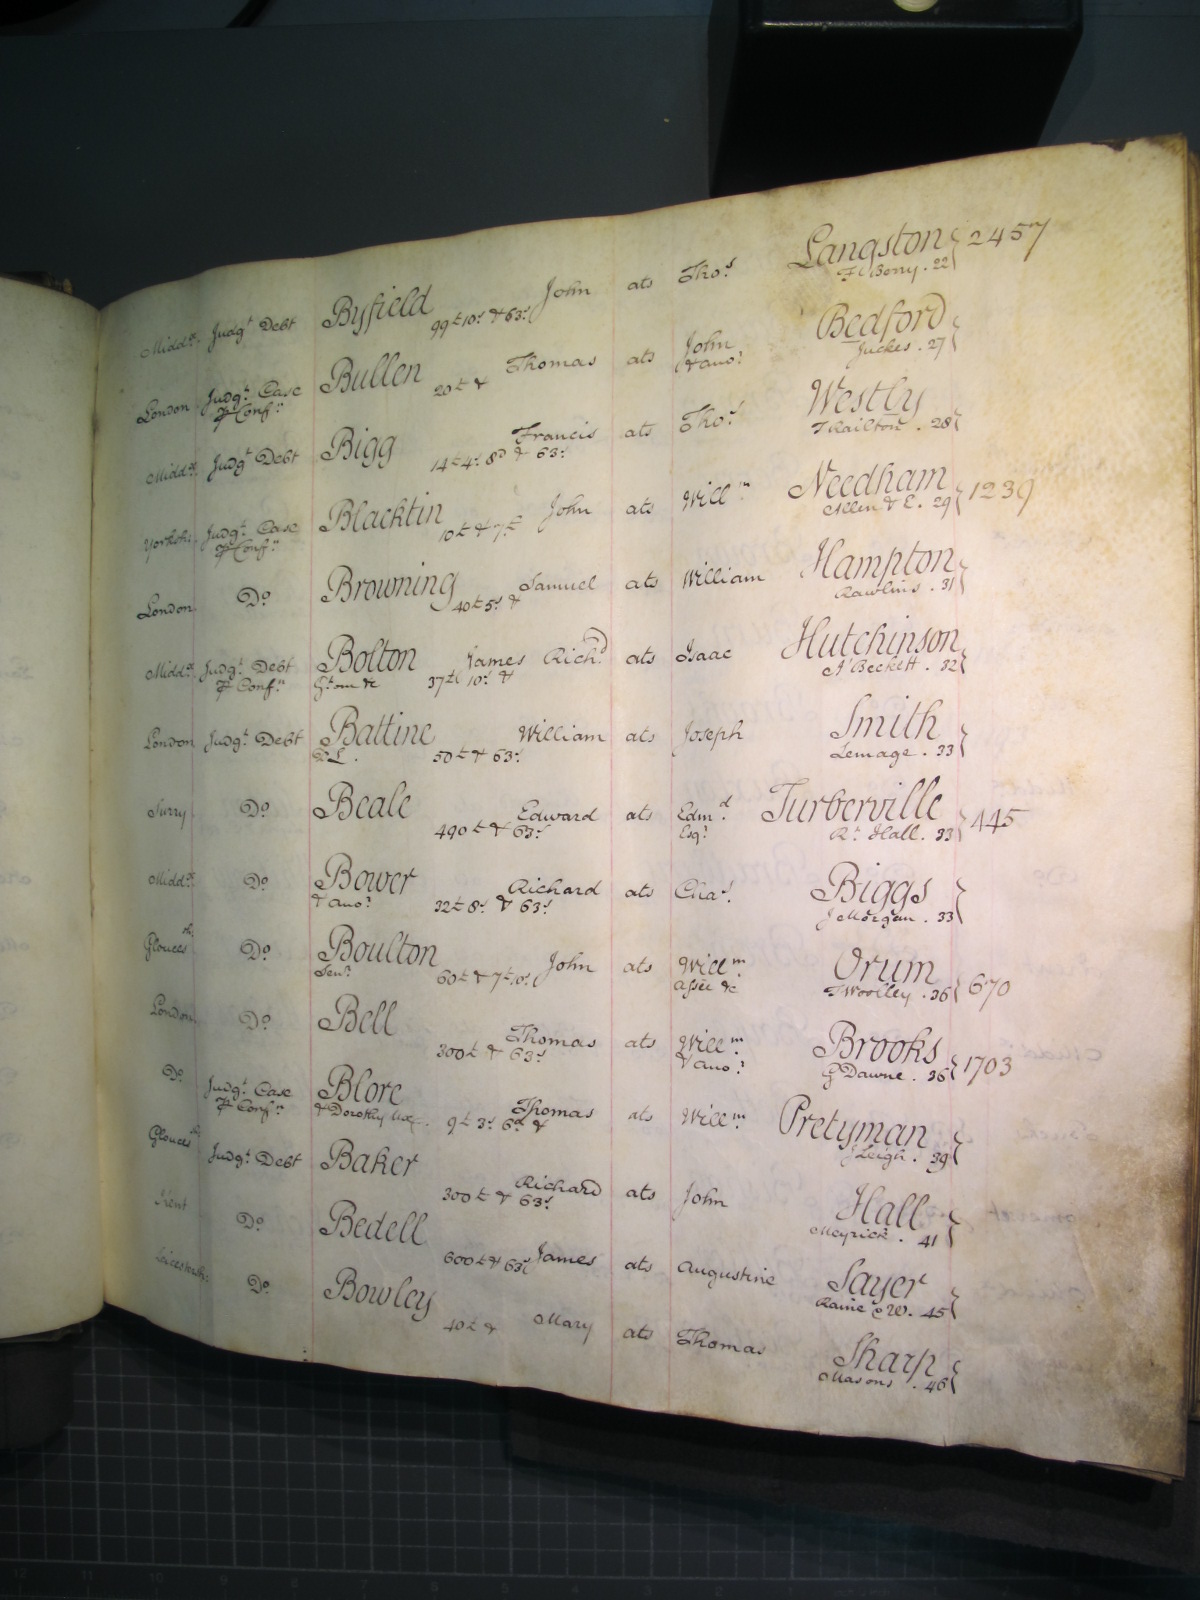 Midd.x Judg.t Debt Byfield John ats Tho.s Langston 2457
99£ 10.s & 63.s F. Berry . 22
London Judg.t Case Bullen Thomas ats John Bedford
& Conf.n 20£ & & ano.r Juckes . 27
Midd.x Judg.t Debt Bigg Francis ats Tho.s Westly
14£ 4.s 8.d & 63.s T Railton . 28
Yorksh. Judg.t Case Blacktin John ats Will.m Needham 1239
& Conf.n 10£ & 7.£ Allen & E. 29
London D.o Browning Samuel ats William Hampton
40£ 5.s & Rawlins . 31
Midd.x Judg.t Debt Bolton James Rich.d ats Isaac Hutchinson
& Conf.n G.t om &c 37£ 10.s & A'Beckett . 32
London Judg.t Debt Battine William ats Joseph Smith
50£ & 63.s Lemage . 33
Surry D.o Beale Edward ats Edm.d Turberville 445
490£ & 63.s Esq.r R.d Hall . 33
Midd.x D.o Bower Richard ats Cha.s Biggs
& ano.r 32£ 8.s & 63.s J Morgan . 33
Gloucessh. D.o Boulton John ats Will.m Orum 670
Sen.r 60£ & 7£ 10.s Assee &c T Woolley . 36
London D.o Bell Thomas ats Will.m Brooks 1703
300£ & 63.s & ano.r G Dawne . 36
D.o Judg.t Case Blore Thomas ats Will.m Pretyman
& Conf.n & Dorothy Ux. 9£ 3.s 6.d & J Leigh . 39
Gloucessh. Judg.t Debt Baker Richard ats John Hall
300£ & 63.s Meyrick . 41
Kent D.o Bedell James ats Augustine Sayer
600£ & 63.s Raine & W. 45
Leicestersh. D.o Bowley Mary ats Thomas Sharp
40£ & Masons . 46